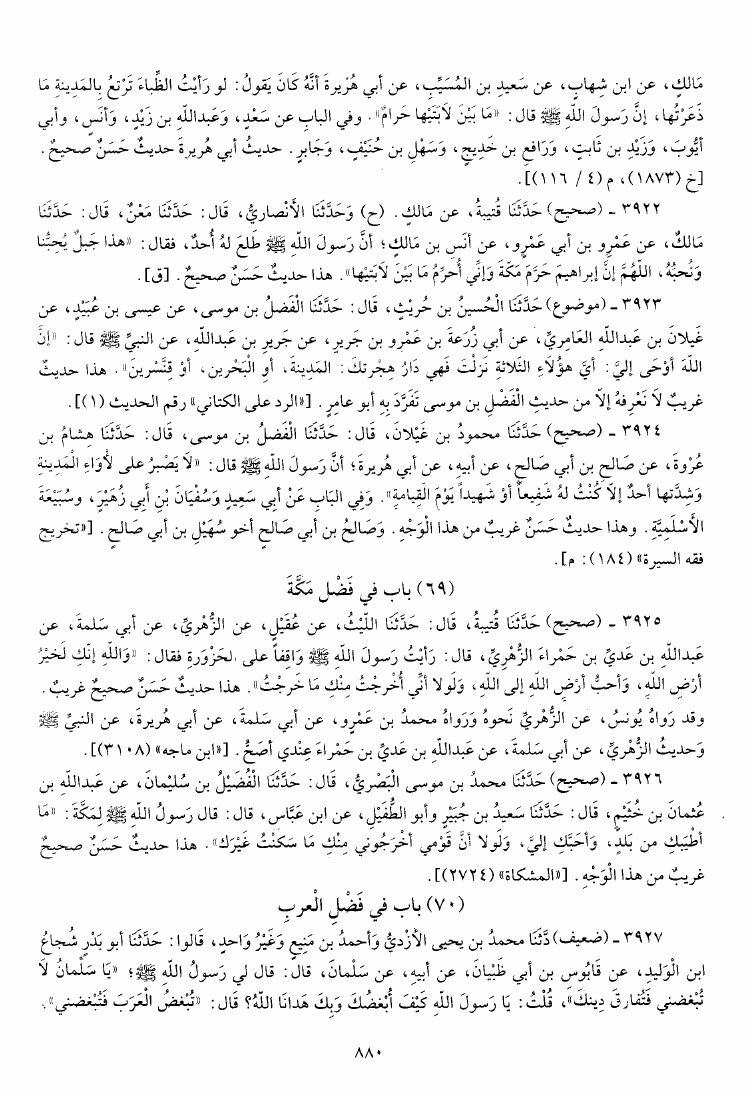 مَالكٍ، عن ابن شِهابٍ، عن سَعيدِ بن المُسَيِّبِ، عن أبي هُرَيرةَ أنَّهُ كَانَ يَقولُ: لو رَأيْتُ الظِّباءَ تَرْتعُ بالمَدِينةِ مَا
ذَعَرْتُها، إنَّ رَسولَ اللَّهِ ﷺ قال: «مَا بَيْنَ لاَبَتَيْها حَرامٌ». وفي البابِ عن سَعْدٍ، وَعَبداللَّهِ بن زَيْدٍ، وَأنَسٍ، وأبي
أيُّوبَ، وَزَيْدِ بن ثَابتٍ، وَرَافعِ بن خَديجٍ، وَسَهْلِ بن حُنَيْفٍ، وَجَابرٍ. حديثُ أبي هُريرةَ حديثٌ حَسَنٌ صحيحٌ.
[خ (١٨٧٣)، م (٤ / ١١٦)].
٣٩٢٢ ـ (صحيح) حَدَّثَنَا قُتيبةُ، عن مَالكٍ. (ح) وَحَدَّثَنَا الأنْصاريُّ، قَالَ: حَدَّثَنَا مَعْنٌ، قَالَ: حَدَّثَنَا
مَالكٌ، عن عَمْرِو بن أبي عَمْرٍو، عن أنَسِ بن مَالكٍ؛ أنَّ رَسولَ اللَّهِ ﷺ طَلعَ لهُ أُحدٌ، فقال: «هذا جَبلٌ يُحِبُّنا
وَنُحبُّهُ، اللَّهُمَّ إنَّ إبراهيمَ حَرَّمَ مَكّةَ وَإنِّي أُحرِّمُ مَا بَيْنَ لاَبَتَيْها». هذا حديثٌ حَسَنٌ صحيحٌ. [ق].
٣٩٢٣ ـ (موضوع) حَدَّثَنَا الْحُسينُ بن حُريْثٍ، قَالَ: حَدَّثَنَا الْفَضلُ بن موسى، عن عيسى بن عُبَيْدٍ، عن
غَيلانَ بن عَبداللَّهِ العَامريِّ، عن أبي زُرعَةَ بن عَمْرِو بن جَريرٍ، عن جَريرِ بن عَبداللَّهِ، عن النبيِّ ﷺ قال: «إنَّ
اللَّهَ أوْحَى إليَّ: أيَّ هؤُلاَءِ الثّلاثةِ نَزلْتَ فَهي دَارُ هِجْرتكَ: المَدينةَ، أوِ الْبَحْرينِ، أوْ قِنَّسْرينَ». هذا حديثٌ
غريبٌ لاَ نَعْرِفهُ إلاّ من حديثِ الْفَضْلِ بن موسى تَفَرَّدَ بهِ أبو عامرٍ. [«الرد على الكتاني» رقم الحديث (١)].
٣٩٢٤ ـ (صحيح) حَدَّثَنَا محمودُ بن غَيْلانَ، قَالَ: حَدَّثَنَا الْفَضلُ بن موسى، قَالَ: حَدَّثَنَا هِشامُ بن
عُرْوةَ، عن صَالحِ بن أبي صَالحٍ، عن أبيهِ، عن أبي هُريرةَ؛ أنَّ رَسولَ اللَّهِ ﷺ قال: «لاَ يَصْبرُ على لأوَاءِ الْمَدينةِ
وَشِدَّتها أحدٌ إلاّ كُنْتُ لهُ شَفيعاً أوْ شَهيداً يَوْمَ القِيامةِ». وَفِي البَابِ عَنْ أَبي سَعِيدٍ وَسُفْيَانَ بْنِ أَبِي زُهَيْرٍ، وسُبَيْعَةَ
الأسْلَمِيّةِ. وهذا حديثٌ حَسَنٌ غريبٌ من هذا الْوَجْهِ. وَصَالحُ بن أبي صَالحٍ أخو سُهَيْلِ بن أبي صَالحٍ. [«تخريج
فقه السيرة» (١٨٤): م].
(٦٩) باب في فَضْلِ مَكَّةَ
٣٩٢٥ ـ (صحيح) حَدَّثَنَا قُتيبةُ، قَالَ: حَدَّثَنَا اللّيْثُ، عن عُقَيْلٍ، عن الزُّهْريِّ، عن أبي سَلمةَ، عن
عَبداللَّهِ بن عَديِّ بن حَمْراءَ الزُّهْرِيِّ، قال: رَأيْتُ رَسولَ اللَّهِ ﷺ وَاقِفاً على الحَزْوَرةِ فقال: «وَاللَّهِ إنّكِ لَخيْرُ
أرْضِ اللَّهِ، وَأحبُّ أرْضِ اللَّهِ إلى اللَّهِ، وَلَولا أنِّي أُخْرجْتُ مِنْكِ مَا خَرجْتُ». هذا حديثٌ حَسَنٌ صحيحٌ غريبٌ.
وقد رَواهُ يُونسُ، عن الزُّهْريِّ نَحوهُ وَرَواهُ محمدُ بن عَمرٍو، عن أبي سَلمةَ، عن أبي هُريرةَ، عن النبيِّ ﷺ
وَحديثُ الزُّهْريِّ، عن أبي سَلمةَ، عن عَبداللَّهِ بن عَديِّ بن حَمْراءَ عِنْدي أصَحُّ. [«ابن ماجه» (٣١٠٨)].
٣٩٢٦ ـ (صحيح) حَدَّثَنَا محمدُ بن موسى الْبَصْريُّ، قَالَ: حَدَّثَنَا الْفُضَيْلُ بن سُليْمانَ، عن عَبداللَّهِ بن
عُثمانَ بن خُثَيْمٍ، قَالَ: حَدَّثَنَا سَعيدُ بن جُبَيْرٍ وأبو الطُّفَيْلِ، عن ابن عَبَّاسٍ، قال: قال رَسولُ اللَّهِ ﷺ لِمَكّةَ: «مَا
أطْيَبَكِ من بَلدٍ، وَأحَبَّكِ إليَّ، وَلَولا أنَّ قَوْمي أخْرَجُوني مِنْكِ مَا سَكنْتُ غَيْرَكِ». هذا حديثٌ حَسَنٌ صحيحٌ
غريبٌ من هذا الْوَجْهِ. [«المشكاة» (٢٧٢٤)].
(٧٠) باب في فَضْلِ الْعربِ
٣٩٢٧ ـ (ضعيف) دَّثَنَا محمدُ بن يحيى الأزْديُّ وَأحمدُ بن مَنيعٍ وَغَيْرُ وَاحدٍ، قَالوا: حَدَّثَنَا أبو بَدْرٍ شُجاعُ
ابن الْوَليدِ، عن قَابُوسَ بن أبي ظَبْيانَ، عن أبيهِ، عن سَلْمانَ، قال: قال لي رَسولُ اللَّهِ ﷺ؛ «يَا سَلْمانُ لاَ
تُبْغضني فَتُفارقَ دِينكَ»، قُلْتُ: يَا رَسولَ اللَّهِ كَيْفَ أُبْغضُكَ وَبِكَ هَدانَا اللَّهُ؟ قال: «تُبْغضُ الْعَرَبَ فَتُبْغضني».
٨٨٠